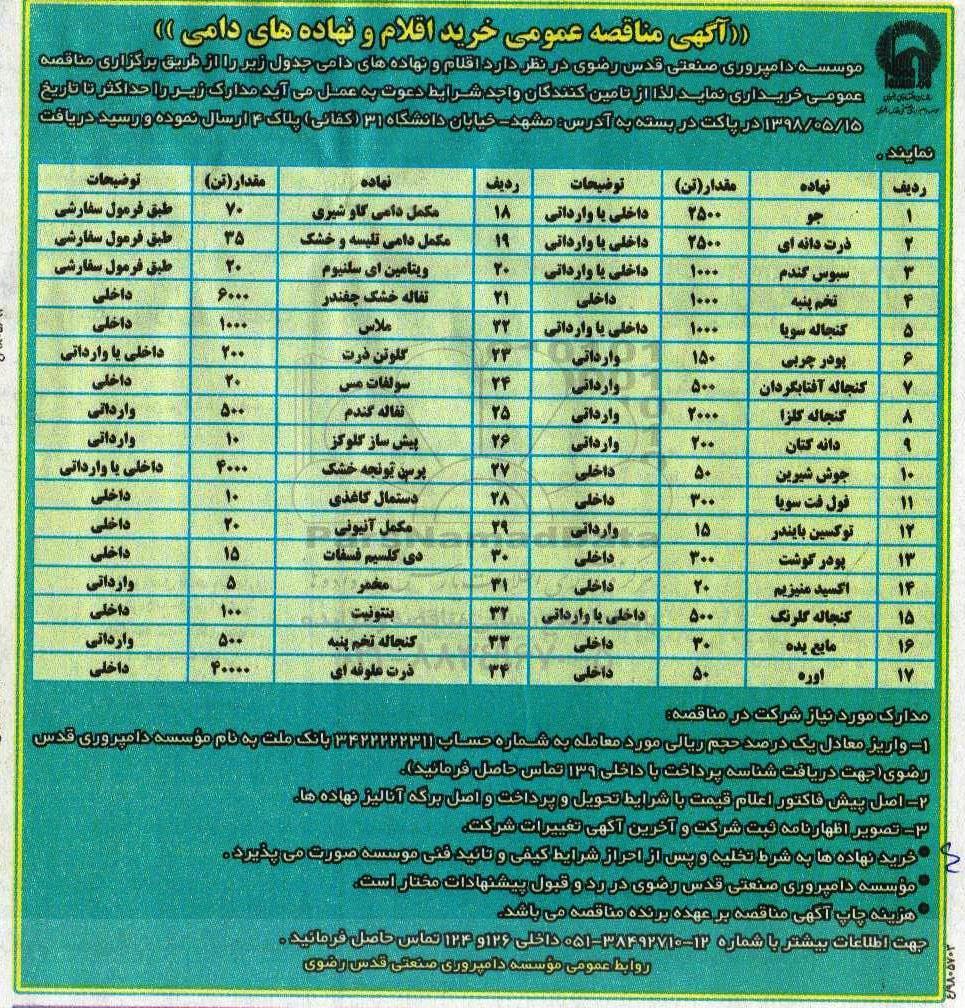 ((آگهی مناقصه عمومی خرید اقلام و نهاده های دامی ))
موسسه دامپروری صنعتی قدس رضوی در نظر دارد اقلام و نهاده های دامی جدول زیر را از طریق برگزاری مناقصه
عمومی خریداری نماید لذا از تامین کنندگان واجد شرایط دعوت به عمل می آید مدارک زیر را حداکثر تا تاریخ
۱۳۹۸/۰۵/۱۵ در پاکت در بسته به آدرس: مشهد- خیابان دانشگاه ۳۱ (کفائی) پلاک ۴ ارسال نموده و رسید دریافت
نمایند .
ردیف نهاده مقدار(تن) توضیحات ردیف نهاده مقدار(تن) توضیحات
۱ جو ۲۵۰۰ داخلی یا وارداتی ۱۸ مکمل دامی گاو شیری ۷۰ طبق فرمول سفارشی
۲ ذرت دانه ای ۲۵۰۰ داخلی یا وارداتی ۱۹ مکمل دامی تلیسه و خشک ۳۵ طبق فرمول سفارشی
۳ سبوس گندم ۱۰۰۰ داخلی یا وارداتی ۲۰ ویتامین ای سلنیوم ۲۰ طبق فرمول سفارشی
۴ تخم پنبه ۱۰۰۰ داخلی ۲۱ تفاله خشک چغندر ۶۰۰۰ داخلی
۵ کنجاله سویا ۱۰۰۰ داخلی یا وارداتی ۲۲ ملاس ۱۰۰۰ داخلی
۶ پودر چربی ۱۵۰ وارداتی ۲۳ گلوتن ذرت ۲۰۰ داخلی یا وارداتی
۷ کنجاله آفتابگردان ۵۰۰ وارداتی ۲۴ سولفات مس ۲۰ داخلی
۸ کنجاله کلزا ۲۰۰۰ وارداتی ۲۵ تفاله گندم ۵۰۰ وارداتی
۹ دانه کتان ۲۰۰ وارداتی ۲۶ پیش ساز گلوکز ۱۰ وارداتی
۱۰ جوش شیرین ۵۰ داخلی ۲۷ پرس یونجه خشک ۴۰۰۰ داخلی یا وارداتی
۱۱ فول فت سویا ۳۰۰ داخلی ۲۸ دستمال کاغذی ۱۰ داخلی
۱۲ توکسین بایندر ۱۵ وارداتی ۲۹ مکمل آنیونی ۲۰ داخلی
۱۳ پودر گوشت ۳۰۰ داخلی ۳۰ دی کلسیم فسفات ۱۵ داخلی
۱۴ اکسید منیزیم ۲۰ داخلی ۳۱ مخمر ۵ وارداتی
۱۵ کنجاله گلرنگ ۵۰۰ داخلی یا وارداتی ۳۲ بنتونیت ۱۰۰ داخلی
۱۶ مایع یده ۳۰ داخلی ۳۳ کنجاله تخم پنبه ۵۰۰ وارداتی
۱۷ اوره ۵۰ داخلی ۳۴ ذرت علوفه ای ۴۰۰۰۰ داخلی
مدارک مورد نیاز شرکت در مناقصه:
۱- واریز معادل یک درصد حجم ریالی مورد معامله به شماره حساب ۳۴۲۲۲۲۲۳۱۱ بانک ملت به نام مؤسسه دامپروری قدس
رضوی(جهت دریافت شناسه پرداخت با داخلی ۱۳۹ تماس حاصل فرمائید).
۲- اصل پیش فاکتور اعلام قیمت با شرایط تحویل و پرداخت و اصل برگه آنالیز نهاده ها.
۳- تصویر اظهارنامه ثبت شرکت و آخرین آگهی تغییرات شرکت.
• خرید نهاده ها به شرط تخلیه و پس از احراز شرایط کیفی و تائید فنی موسسه صورت می پذیرد .
• مؤسسه دامپروری صنعتی قدس رضوی در رد و قبول پیشنهادات مختار است.
• هزینه چاپ آگهی مناقصه بر عهده برنده مناقصه می باشد.
جهت اطلاعات بیشتر با شماره ۱۲-۳۸۴۹۲۷۱۰-۰۵۱ داخلی ۱۲۶و ۱۲۴ تماس حاصل فرمائید .
روابط عمومی مؤسسه دامپروری صنعتی قدس رضوی